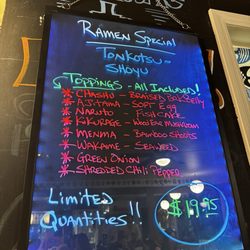 Ramen Special
Tonkotsu-
Shoyu
Toppings - All Included!
* Chashu - Braised Pork Belly
* Ajitama - Soft Egg
* Naruto - Fish Cake
* Kikurage - Wood Ear Mushroom
* Menma - Bamboo Shoots
* Wakame - Seaweed
* Green Onion
* Shredded Chili Pepper
Limited
Quantities!!
$19.95